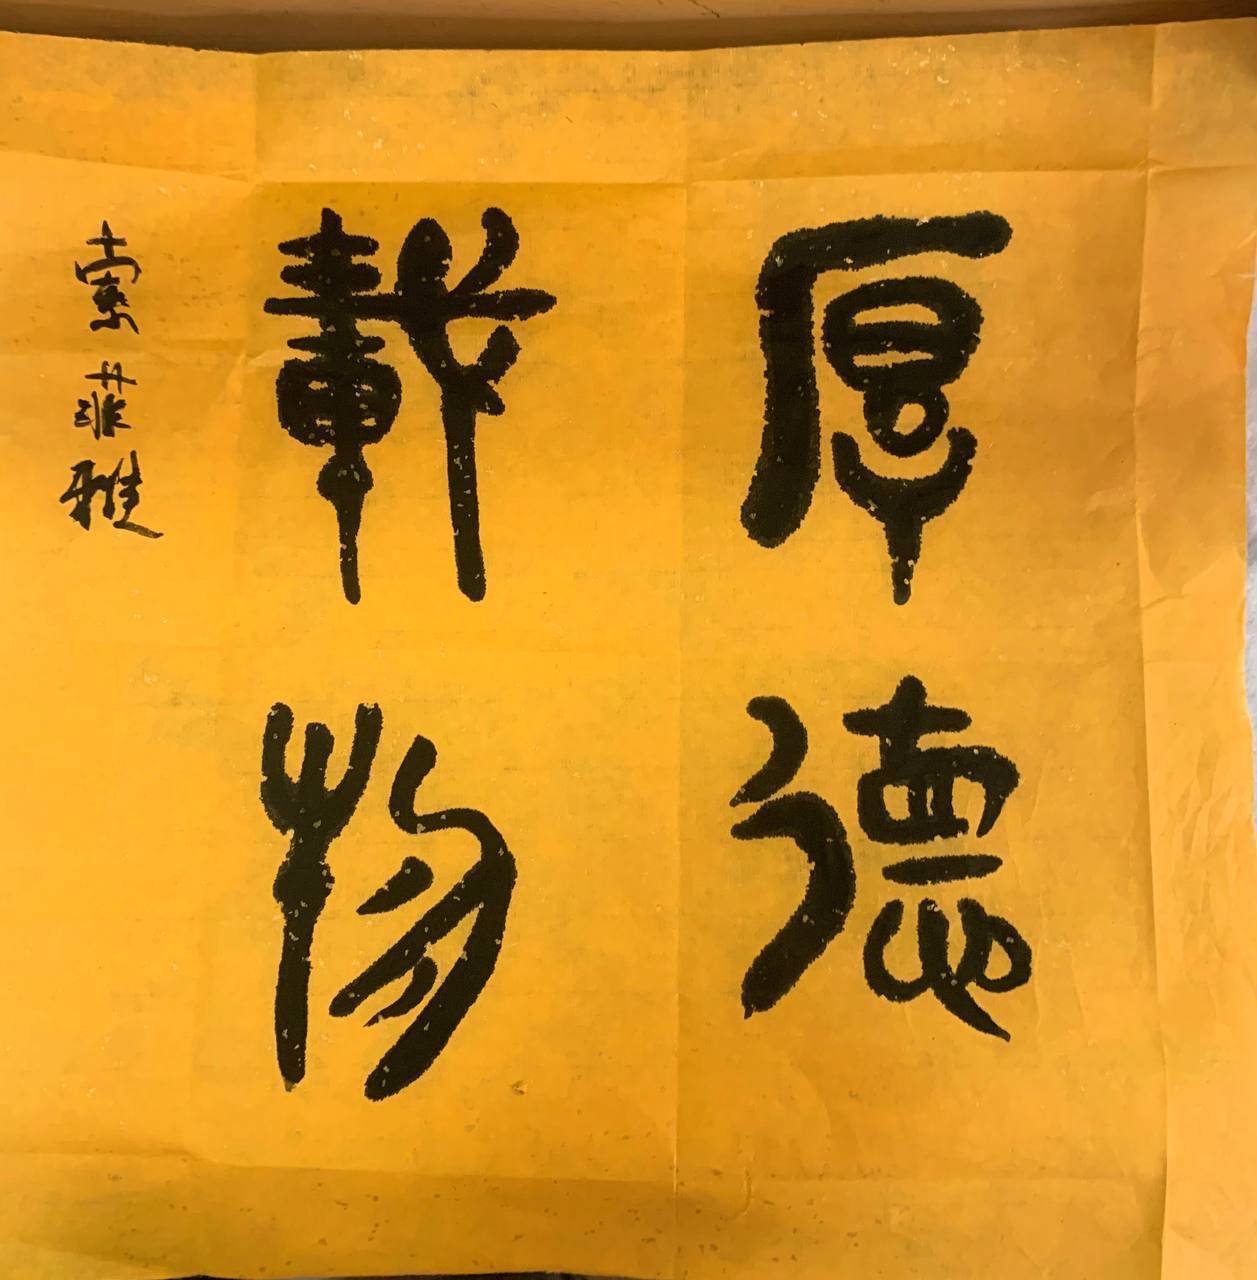 厚德
載物
索菲雅